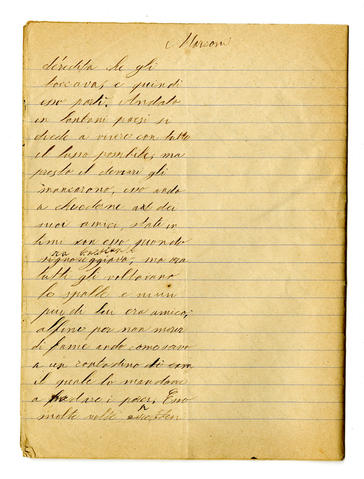 Marconi
d'eredità che gli
toccava, e quindi
esso partì. Andato
in lontani paesi si
diede a vivere con tutto
il lusso possibile, ma
presto il denari gli
mancarono, esso andò
a chiederne ai dei
suoi amici, stati in
timi con esso quando
signoreggiava, ma ora
tutti gli voltavano
le spalle e niun
più di lui era amico,
alfine per non morir
di fame andò come servo
a un contadino di cam
il quale lo mandava
a badare i porci, Esso
molte volte